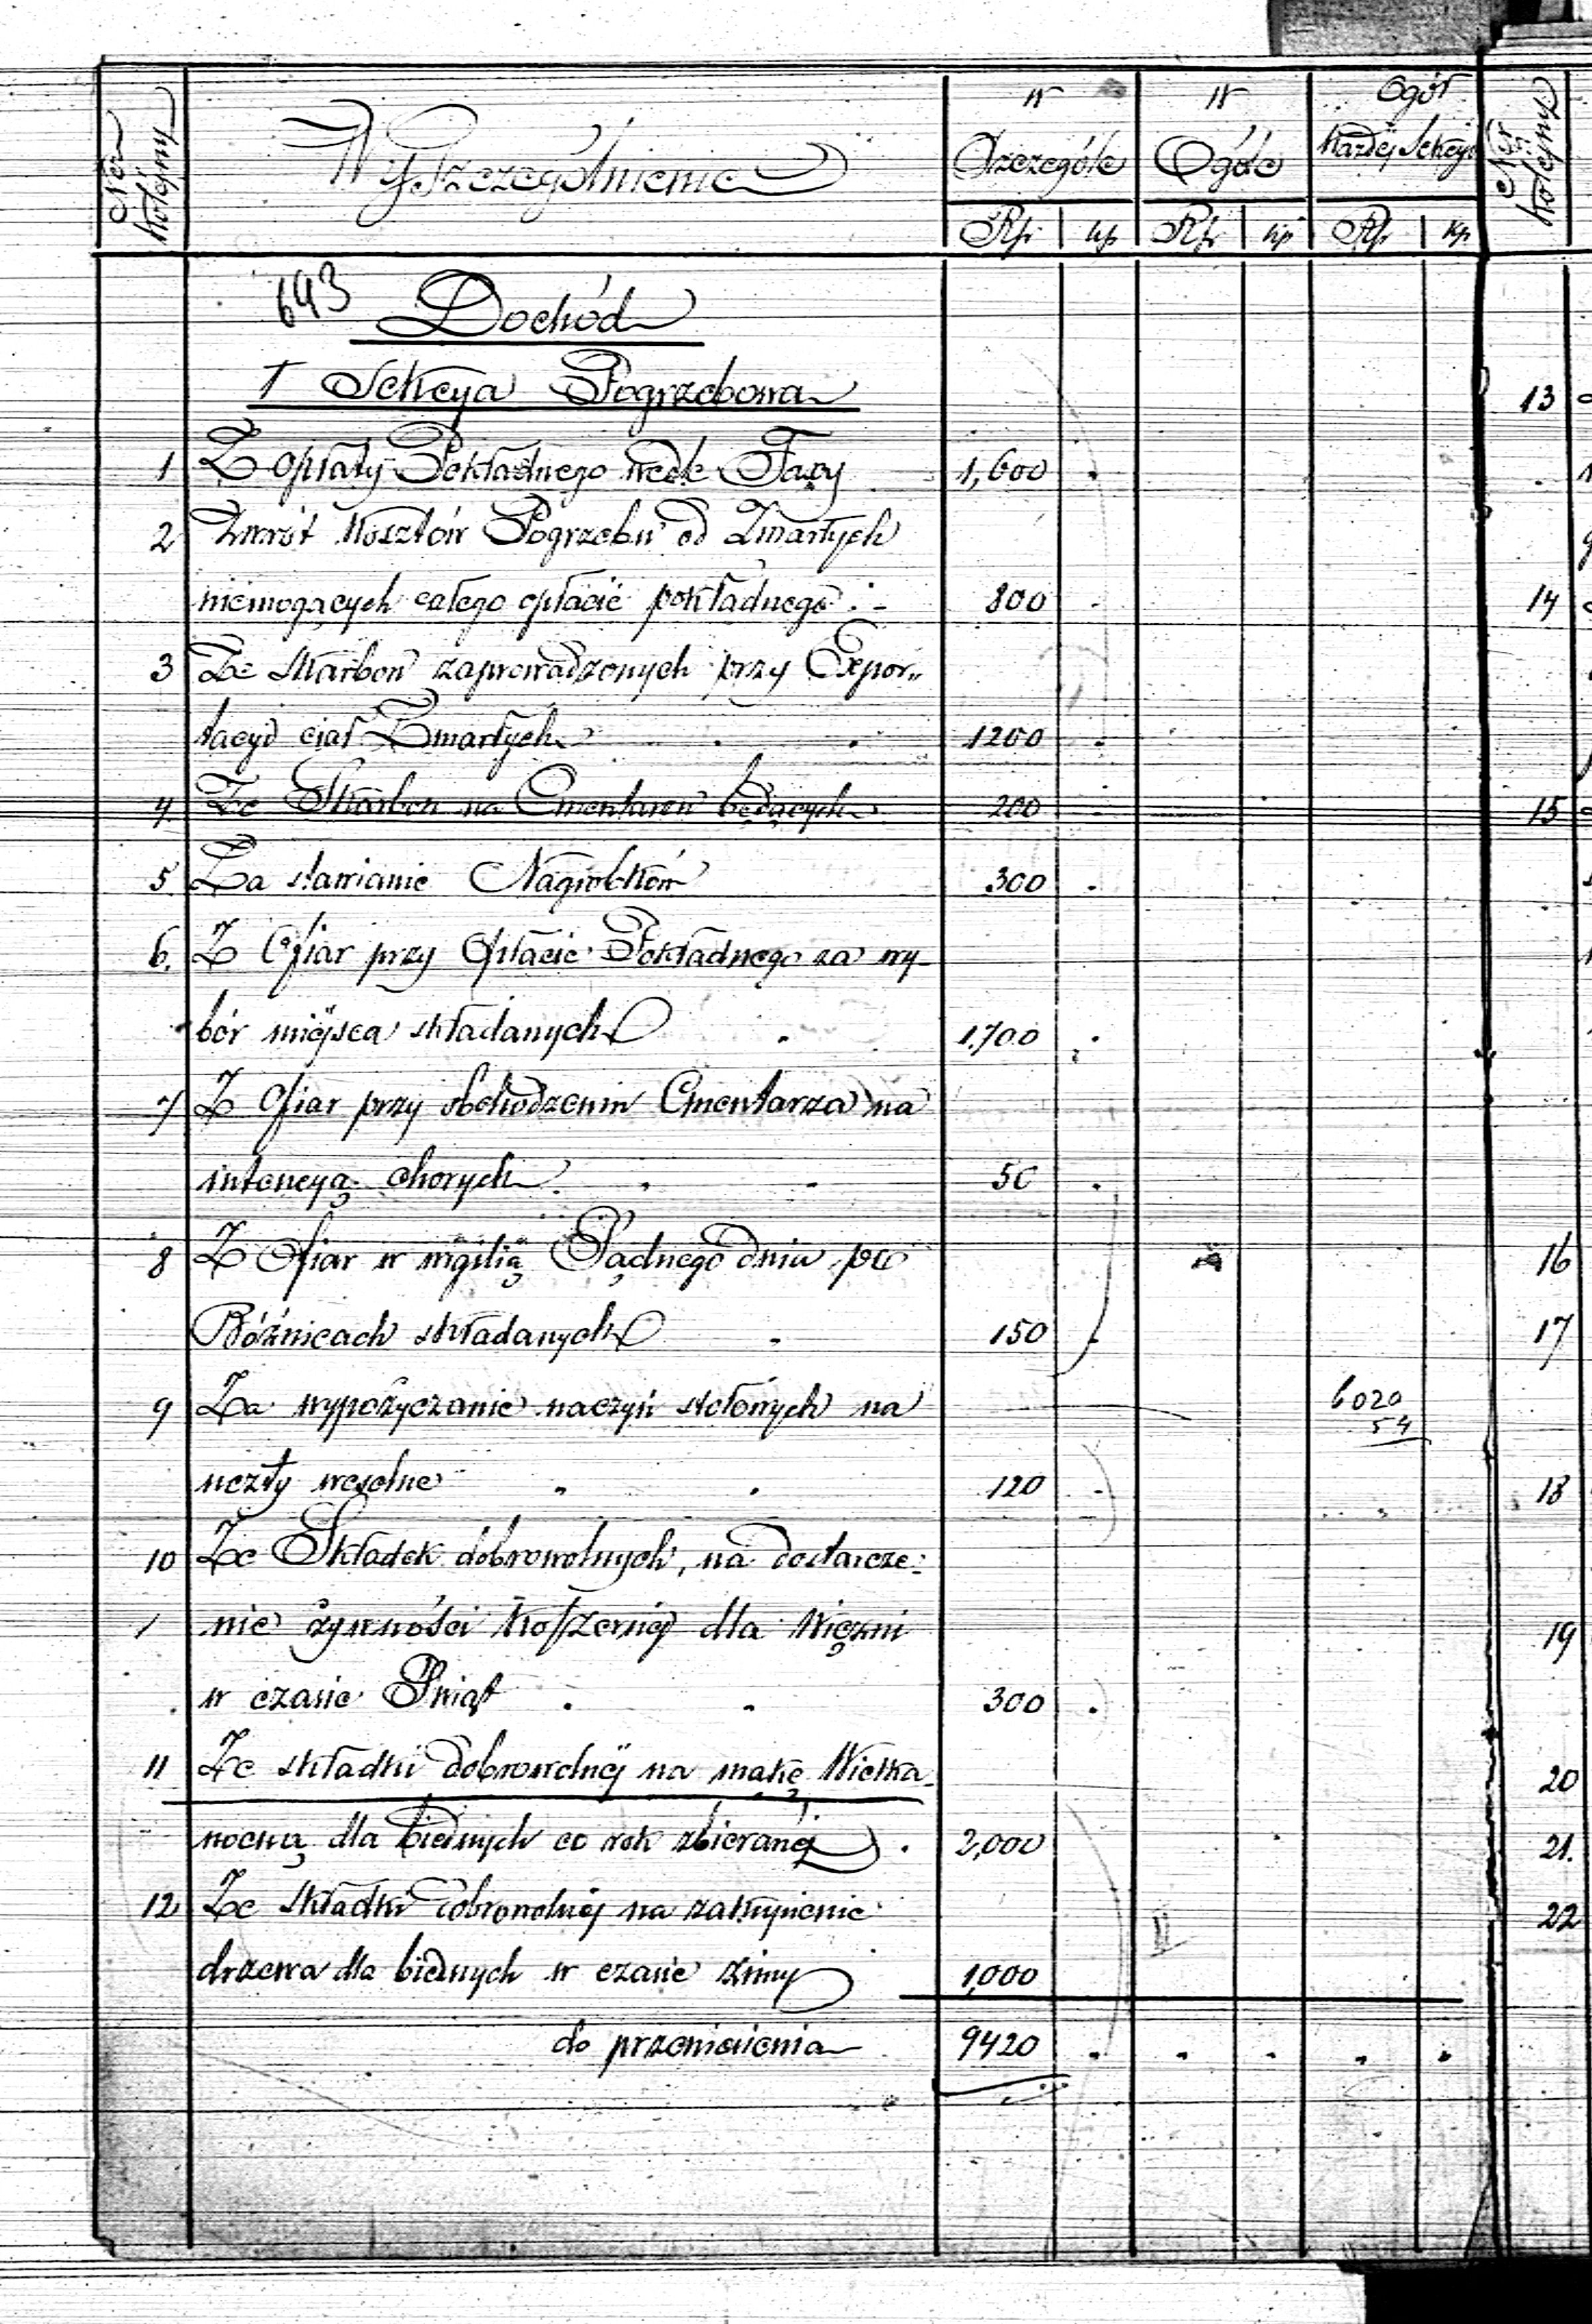 Ner kolejny
Wyszczególnienie
w Szczególe
w Ogóle
Ogół każdéj Sekcyi
Rs kp Rs kp Rs kp
Ner kolejny
643 Dochód
I Sekcya Pogrzebowa
1 Z opłaty Pokładnego wedle Taxy 1,600 .
2 Zwrót kosztów Pogrzebu od Zmarłych
niemogących całego opłacić pokładnego . - 800 -
3 Ze skarbon zaprowadzonych przy Expor„
tacyi ciał Zmarłych . . 1200 .
4. Ze Skarbon na Cmentarzu będących 200
5. Za stawianie Nagrobków 300 .
6. Z Ofiar przy Opłacie Pokładnego za wy-
bór miejsca składanych . 1.700 .
7 Z Ofiar przy obchodzeniu Cmentarza na
intencyą chorych . . 50 .
8 Z Ofiar w wigilią Sądnego dnia po
Bóźnicach składanych . 150 .
9 Za wypożyczanie naczyń stołowych na
uczty weselne . . 120 .
6020
54
10 Ze Składek dobrowolnych, na dostarcze-
nie żywności koszernej dla Więźni
w czasie Świąt . . 300 .
11 Ze składki dobrowolnéj na mąkę Wielka-
nocną dla biednych co rok zbieranéj . 2,000
12 Ze składki dobrowolnéj na zakupienie
drzewa dla biednych w czasie zimy 1,000
do przeniesienia 9420 . . . . .
13
14
15
16
17
18
19
20
21.
22